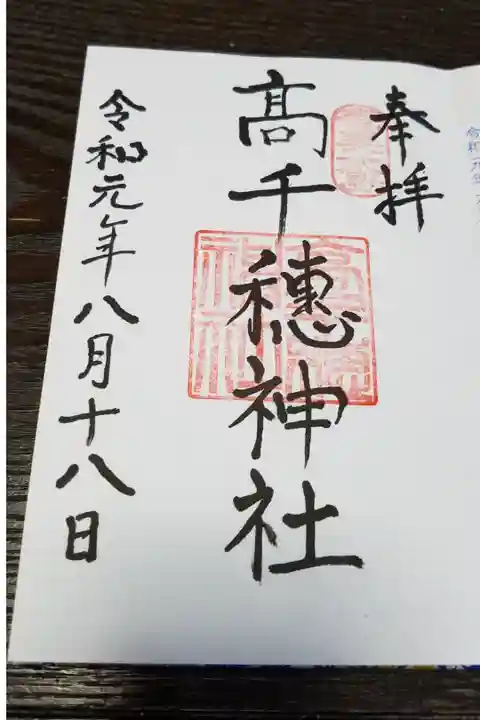 奉拝
髙千穂神社
令和元年八月十八日